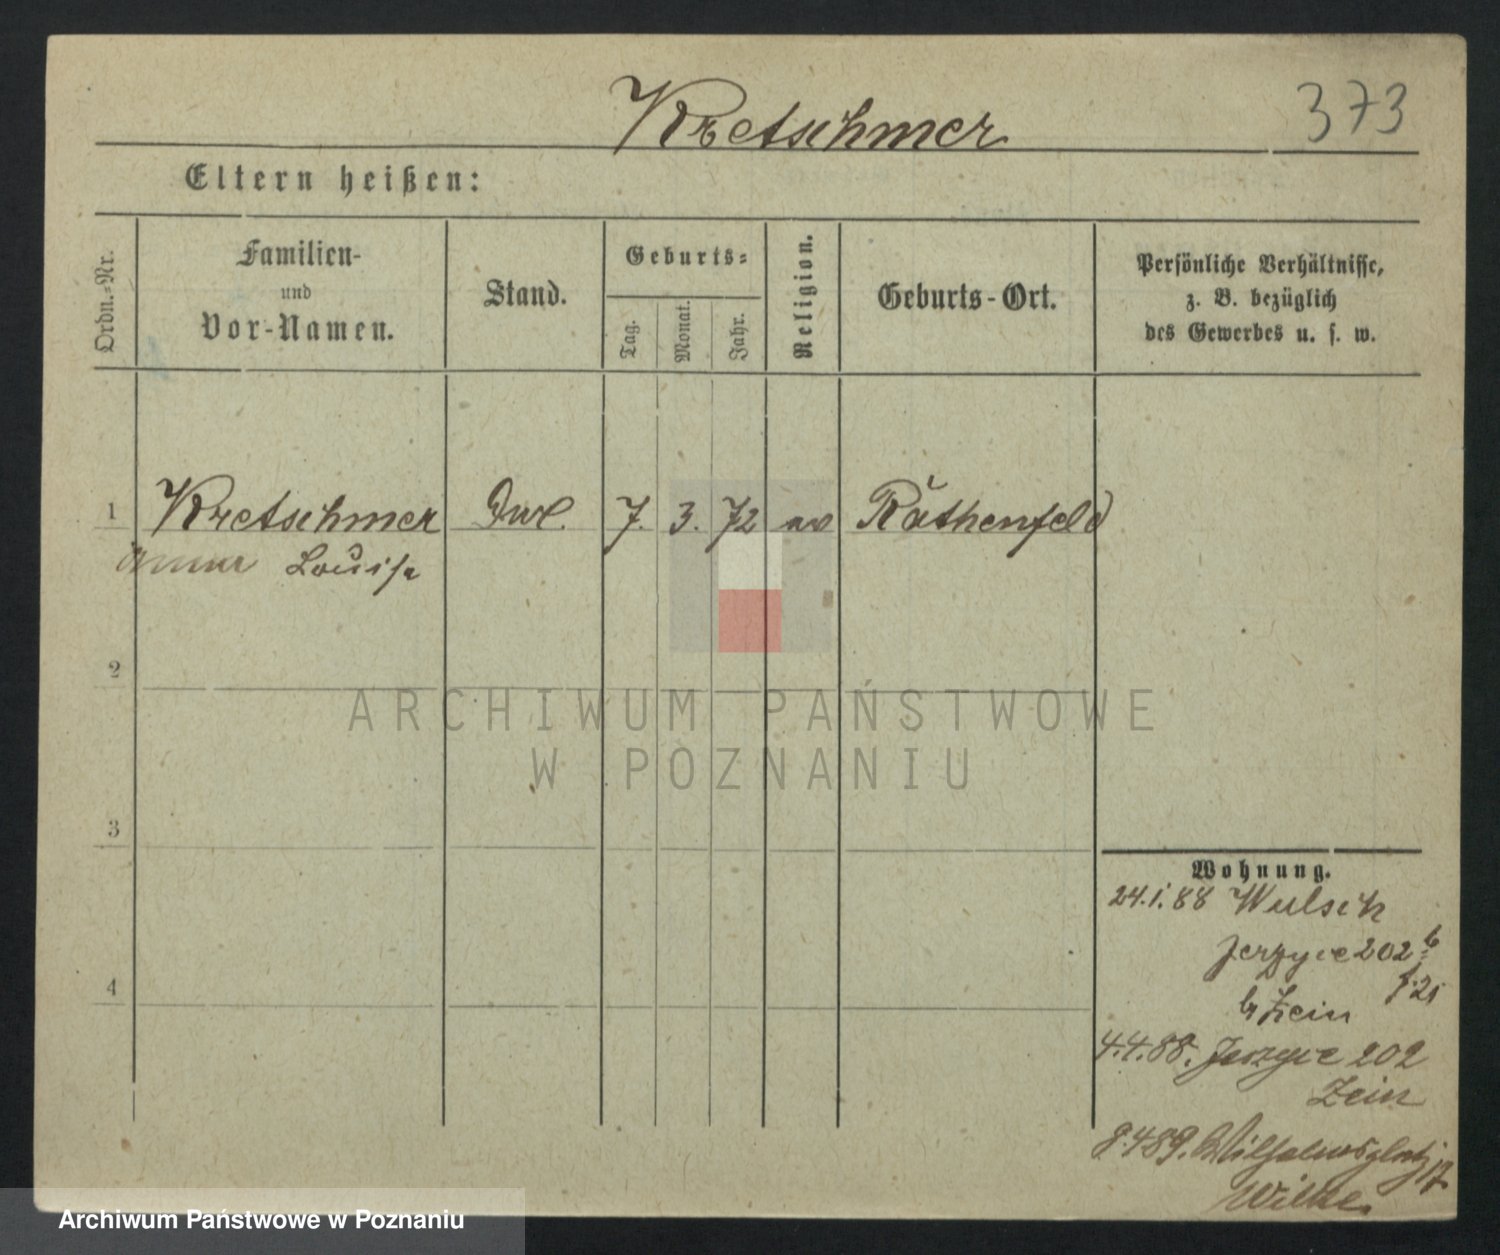 Kretschmer 373
Eltern heißen:
Ordn.-Nr.
Familien-
und
Vor-Namen.
Stand.
Geburts-
Tag.
Monat.
Jahr.
Religion.
Geburts-Ort.
Persönliche Verhältnisse,
z. B. bezüglich
des Gewerbes u. s. w.
1 Kretschmer 7. 3. 72 ev Rathenfeld
Anna Louise
2
3
4
Wohnung.
24.1.88 Wulsch
Jerzyce 202 b
b Zein
4.4.88. Jerzyce 202
Zein
8.4 89. Wilhelmsplatz 17
Wilke.
ARCHIWUM PAŃSTWOWE
W POZNANIU
Archiwum Państwowe w Poznaniu